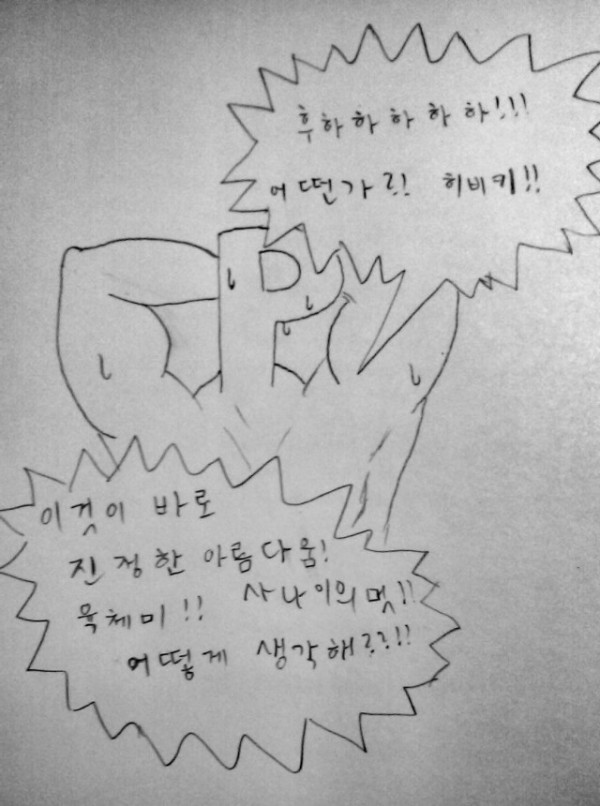 후하하하하하!!!
어떤가?! 히비키!!
이것이 바로
진정한 아름다움!
육체미!! 사나이의 멋!!
어떻게 생각해??!!